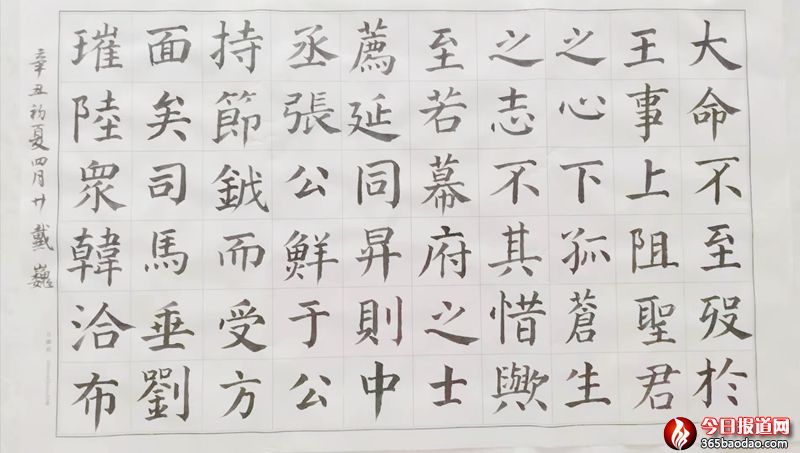 大命不至殁於
王事上阻聖君
之心下孤蒼生
之志不其惜歟
至若幕府之士
薦延同昇則中
丞張公鮮于公
持節鉞而受方
面矣司馬垂劉
璀陸衆韓洽布
辛丑初夏四月廿 戴巍
今日报道网
365baodao.com